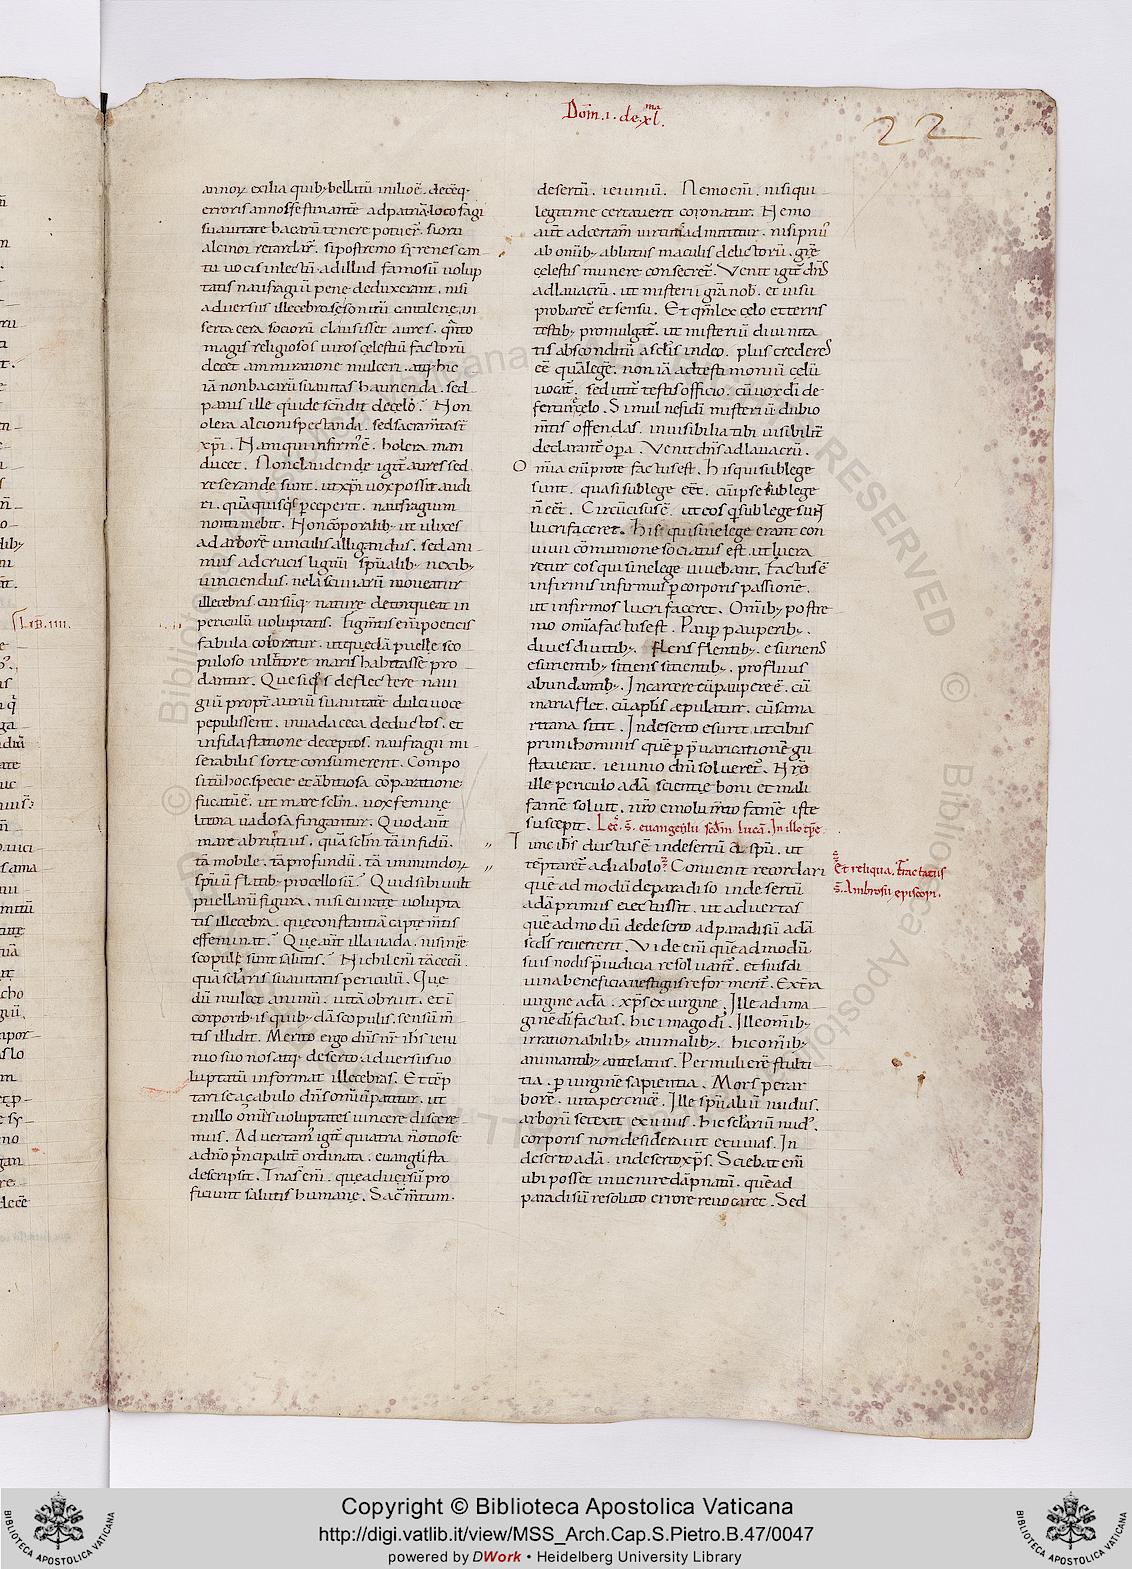 Dom̄ .i. de .xl.ma
22
annoꝝ exilia quibꝫ bellatū in ilio ē. decēq.
erroris annos festinantē ad patriā. loto fagi
suauitate bacarū tenere potuer̄.
alcinoi retardar̄. si postremo syrenes can
tu uocis inlectū. ad illud famosū uolup
tatis naufragiū pene deduxerant. nisi
aduersus illecebrose sonitū cantilene. in
serta cera sociorū clausisset aures. q̄nto
magis religiosos uiros celestiū factorū
decet ammiratione mulceri. atqꝫ hic
iā non bacarū suauitas haurienda. sed
panis ille qui descendit de celo. Non
olera alcinoi spectanda. sed sacram̄ta st̄
xp̄i. Nam qui infirm' ē. holera man
ducet. Non claudende igit̄ aures sed
reserande sunt. ut xp̄i uox possit audi
ri. quā quisq's p̄ceperit. naufragium
non timebit. Non corporalibꝫ ut ulixes
ad arborē uinculis alligandus. sed ani
mus ad crucis lignū sp̄ualibꝫ nexibꝫ
uinciendus. ne lasciuiarū moueatur
illecebris cursūqꝫ nature detorqueat in
periculū uoluptatis. Figm̄tis eni poeticis
fabula coloratur. ut quedā puelle sco
puloso in litore maris habitasse pro
dantur. Que siq's deflectere naui
giū propt̄ auriū suauitatē dulci uoce
pepulissent. in uada ceca deductos. et
infida statione deceptos. naufragii mi
serabilis sorte consumerent. Compo
sitū hoc. specie et ābitiosa cōparatione
fucatū ē. ut mare sclm̄. uox femine
litora uadosa fingantur. Quod aūt
mare abruptius. quā sclm̄ tā infidū.
tā mobile. tā profundū. tā immundoꝝ
sp̄uū flatibꝫ procellosū. Quid sibi uult
puellarū figura. nisi euirate uolupta
tis illecebra. que constantiā capte m̄tis
effeminat. Que aūt illa uada. nisi n̄re
scopuli sunt salutis. Nichil eni tā cecū.
quā sclaris suauitatis periculū. Que
dū mulcet animū. uitā obruit. et ī
corporibꝫ is quibꝫ dā scopulis. sensū m̄
tis illidit. Merito ergo dn̄s nr̄ ih̄s ieiu
nio suo nos atqꝫ deserto aduersus uo
luptatū informat illecebras. Et tēp
tari se a zabulo dn̄s omniū patitur. ut
in illo om̄s uoluptates uincere discere
mus. Aduertam' igit̄ qui a tria n̄ otiose
a dn̄o p̄ncipalit̄ ordinata. euanglista
descripsit. Tria s̄ eni. que aduersū pro
ficiunt salutis humane. Sacm̄tum.
desertū. ieiuniū. Nemo eni. nisi qui
legitime certauerit coronatur. Nemo
aūt ad certam̄ uirtutū admittitur. nisi prius
ab omnibꝫ ablutus maculis delictorū. gr̄e
celestis munere consecret̄. Venit igit̄ dn̄s
ad lauacrū. ut misterii gr̄a nob. et uisu
probaret̄ et sensu. Et qm̄ lex celo et terris
testibꝫ promulgat̄. ut misteriū diuinita
tis absconditū a sclis in deo. plus crederes
eē quā lege. non iā ad testimoniū celū
uocat̄. sed utit̄ testis officio. cū uox di de
fertur celo. Simul ne fidi misteriū dubio
m̄tis offendas. inuisibilia tibi uisibilit̄
declarant̄ opa. Venit dn̄s ad lauacrū.
Omnia eni pro te factus est. His qui sub lege
sunt. quasi sub lege eēt. cū ipse sub lege
n̄ eēt. Circūcisus ē. ut eos q' sub lege sunt
lucrifaceret. His qui sine lege erant con
uiuii cōmunione sociatus est. ut lucra
retur eos qui sine lege uiuebant. Factus ē
infirmis infirmus p corporis passionē.
ut infirmos lucrifaceret. Omibꝫ postre
mo omnia factus est. Paup pauperibꝫ.
diues diuitibꝫ. flens flentibꝫ. esuriens
esurientibꝫ. sitiens sitientibꝫ. profluus
abundantibꝫ. In carcere cū paupere ē. cū
maria flet. cū aplis epulatur. cū sama
ritana sitit. In deserto esurit. ut cibus
primi hominis quē p p̄uaricationē gu
stauerat. ieiunio dn̄i solueret̄. Nr̄o
ille periculo adā scientie boni et mali
famē soluit. nr̄o emolum̄to famē iste
suscepit. Lec̄. s. euangelii sedm̄ lucā. In illo tp̄e.
Tunc ih̄s ductus ē in desertū a sp̄u. ut
tēptaret̄ a diabolo. Conuenit recordari
quē admodū de paradiso in desertū
adā primus eiectus sit. ut aduertas
quē admodū de deserto ad paradisū adā
scds reuenerit. Vide eni quē admodū
suis nodis p̄iudicia resoluant̄. et suis di
uina beneficia uestigiis reforment̄. Ex t̄ra
uirgine adā. xp̄s ex uirgine. Ille ad ima
ginē di factus. hic imago di. Ille omībꝫ
irrationabilibꝫ animalibꝫ. hic omībꝫ
animantibꝫ antelatus. Per mulierē stulti
tia. p uirginē sapientia. Mors per ar
borē. uita per crucē. Ille sp̄ualiū nudus.
arborū se texit exuuiis. hic sclariū nud'.
corporis non desiderauit exuuias. In
deserto adā. in deserto xp̄s. Sciebat eni
ubi posset inuenire dāpnatū. quē ad
paradisū resoluto errore reuocaret. Sed
Et reliqua. Tractatus
s. Ambrosii episcopi.
LIB. IIII.
Copyright © Biblioteca Apostolica Vaticana
http://digi.vatlib.it/view/MSS_Arch.Cap.S.Pietro.B.47/0047
powered by DWork • Heidelberg University Library
BIBLIOTECA APOSTOLICA VATICANA
BIBLIOTECA APOSTOLICA VATICANA